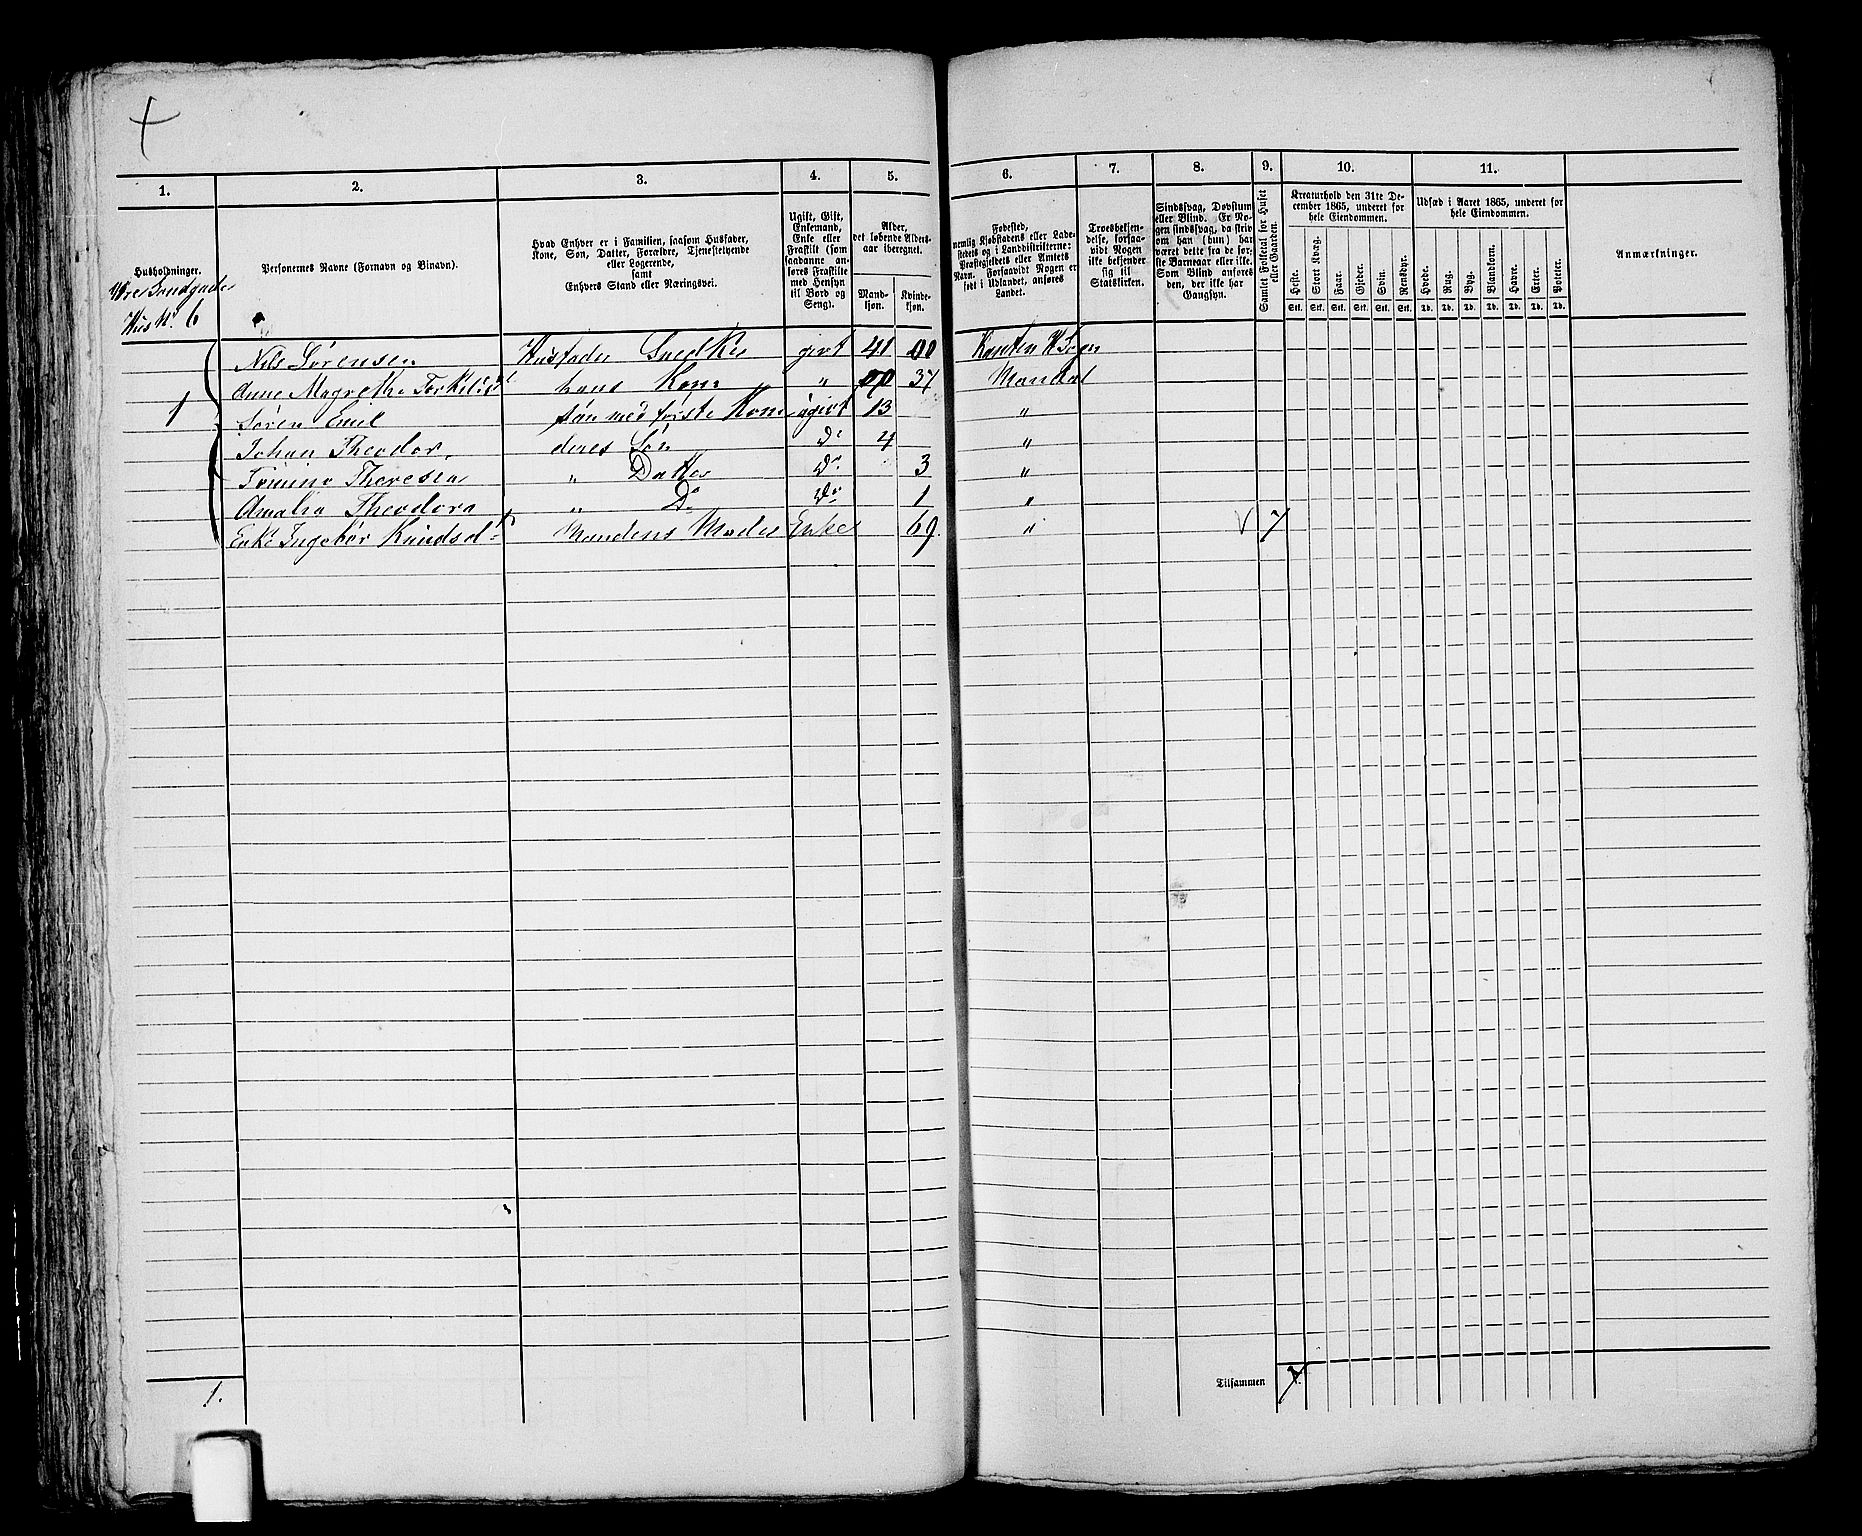 1.
2.
3.
4.
5.
6.
7.
8.
9.
10.
11.
Husholdninger.
Personernes Navne (Fornavn og Binavn).
Hvad Enhver er i Familien, saasom Husfader,
Kone, Søn, Datter, Forældre, Tjenestetyende
eller Logerende,
samt
Enhvers Stand eller Næringsvei.
Ugift, Gift,
Enkemand,
Enke eller
Fraskilt (som
saadanne an-
føres Fraskilte
med Hensyn
til Bord og
Seng).
Alder,
det løbende Alders-
aar iberegnet.
Mand-
kjøn.
Kvinde-
kjøn.
Fødested,
nemlig Kjøbstadens eller Lade-
stedets og i Landdistrikterne:
Præstegjeldets eller Amtets
Navn. Forsaavidt Nogen er
født i Udlandet, anføres
Landet.
Troesbekjen-
delse, forsaa-
vidt Nogen
ikke bekjender
sig til
Statskirken.
Sindssvag, Døvstum
eller Blind. Er No-
gen sindssvag, da skriv
om han (hun) har
været dette fra de før-
ste Barneaar eller ikke.
Som Blind anføres
den, der ikke har
Gangsyn.
Samlet Folketal for Huset
eller Gaarden.
Kreaturhold den 31te De-
cember 1865, underet for
hele Eiendommen.
Heste.
Stort Kvæg.
Faar.
Gjeder.
Svin.
Rensdyr.
Stk. Stk. Stk. Stk. Stk. Stk.
Udsæd i Aaret 1865, underet for
hele Eiendommen.
Hvede.
Rug.
Byg.
Blandkorn.
Havre.
Erter.
Poteter.
Td. Td. Td. Td. Td. Td. Td.
Anmærkninger.
Hus N. 6
Nils Sørensen Husfader Snedker givt 41 00 Sogn
1
Anne Magrethe hans Kone " 00 37 Mandal
Søren Emil Søn med første Kone ugivt 13 "
Johan Theodor deres Søn Do 4 "
Theresea " Datter Do 3 "
Amalia Theodora " Do Do 1 "
Enke Ingebør Knudsd. Mandens Moder Enke 69. " V 7
Tilsammen 7.
1.